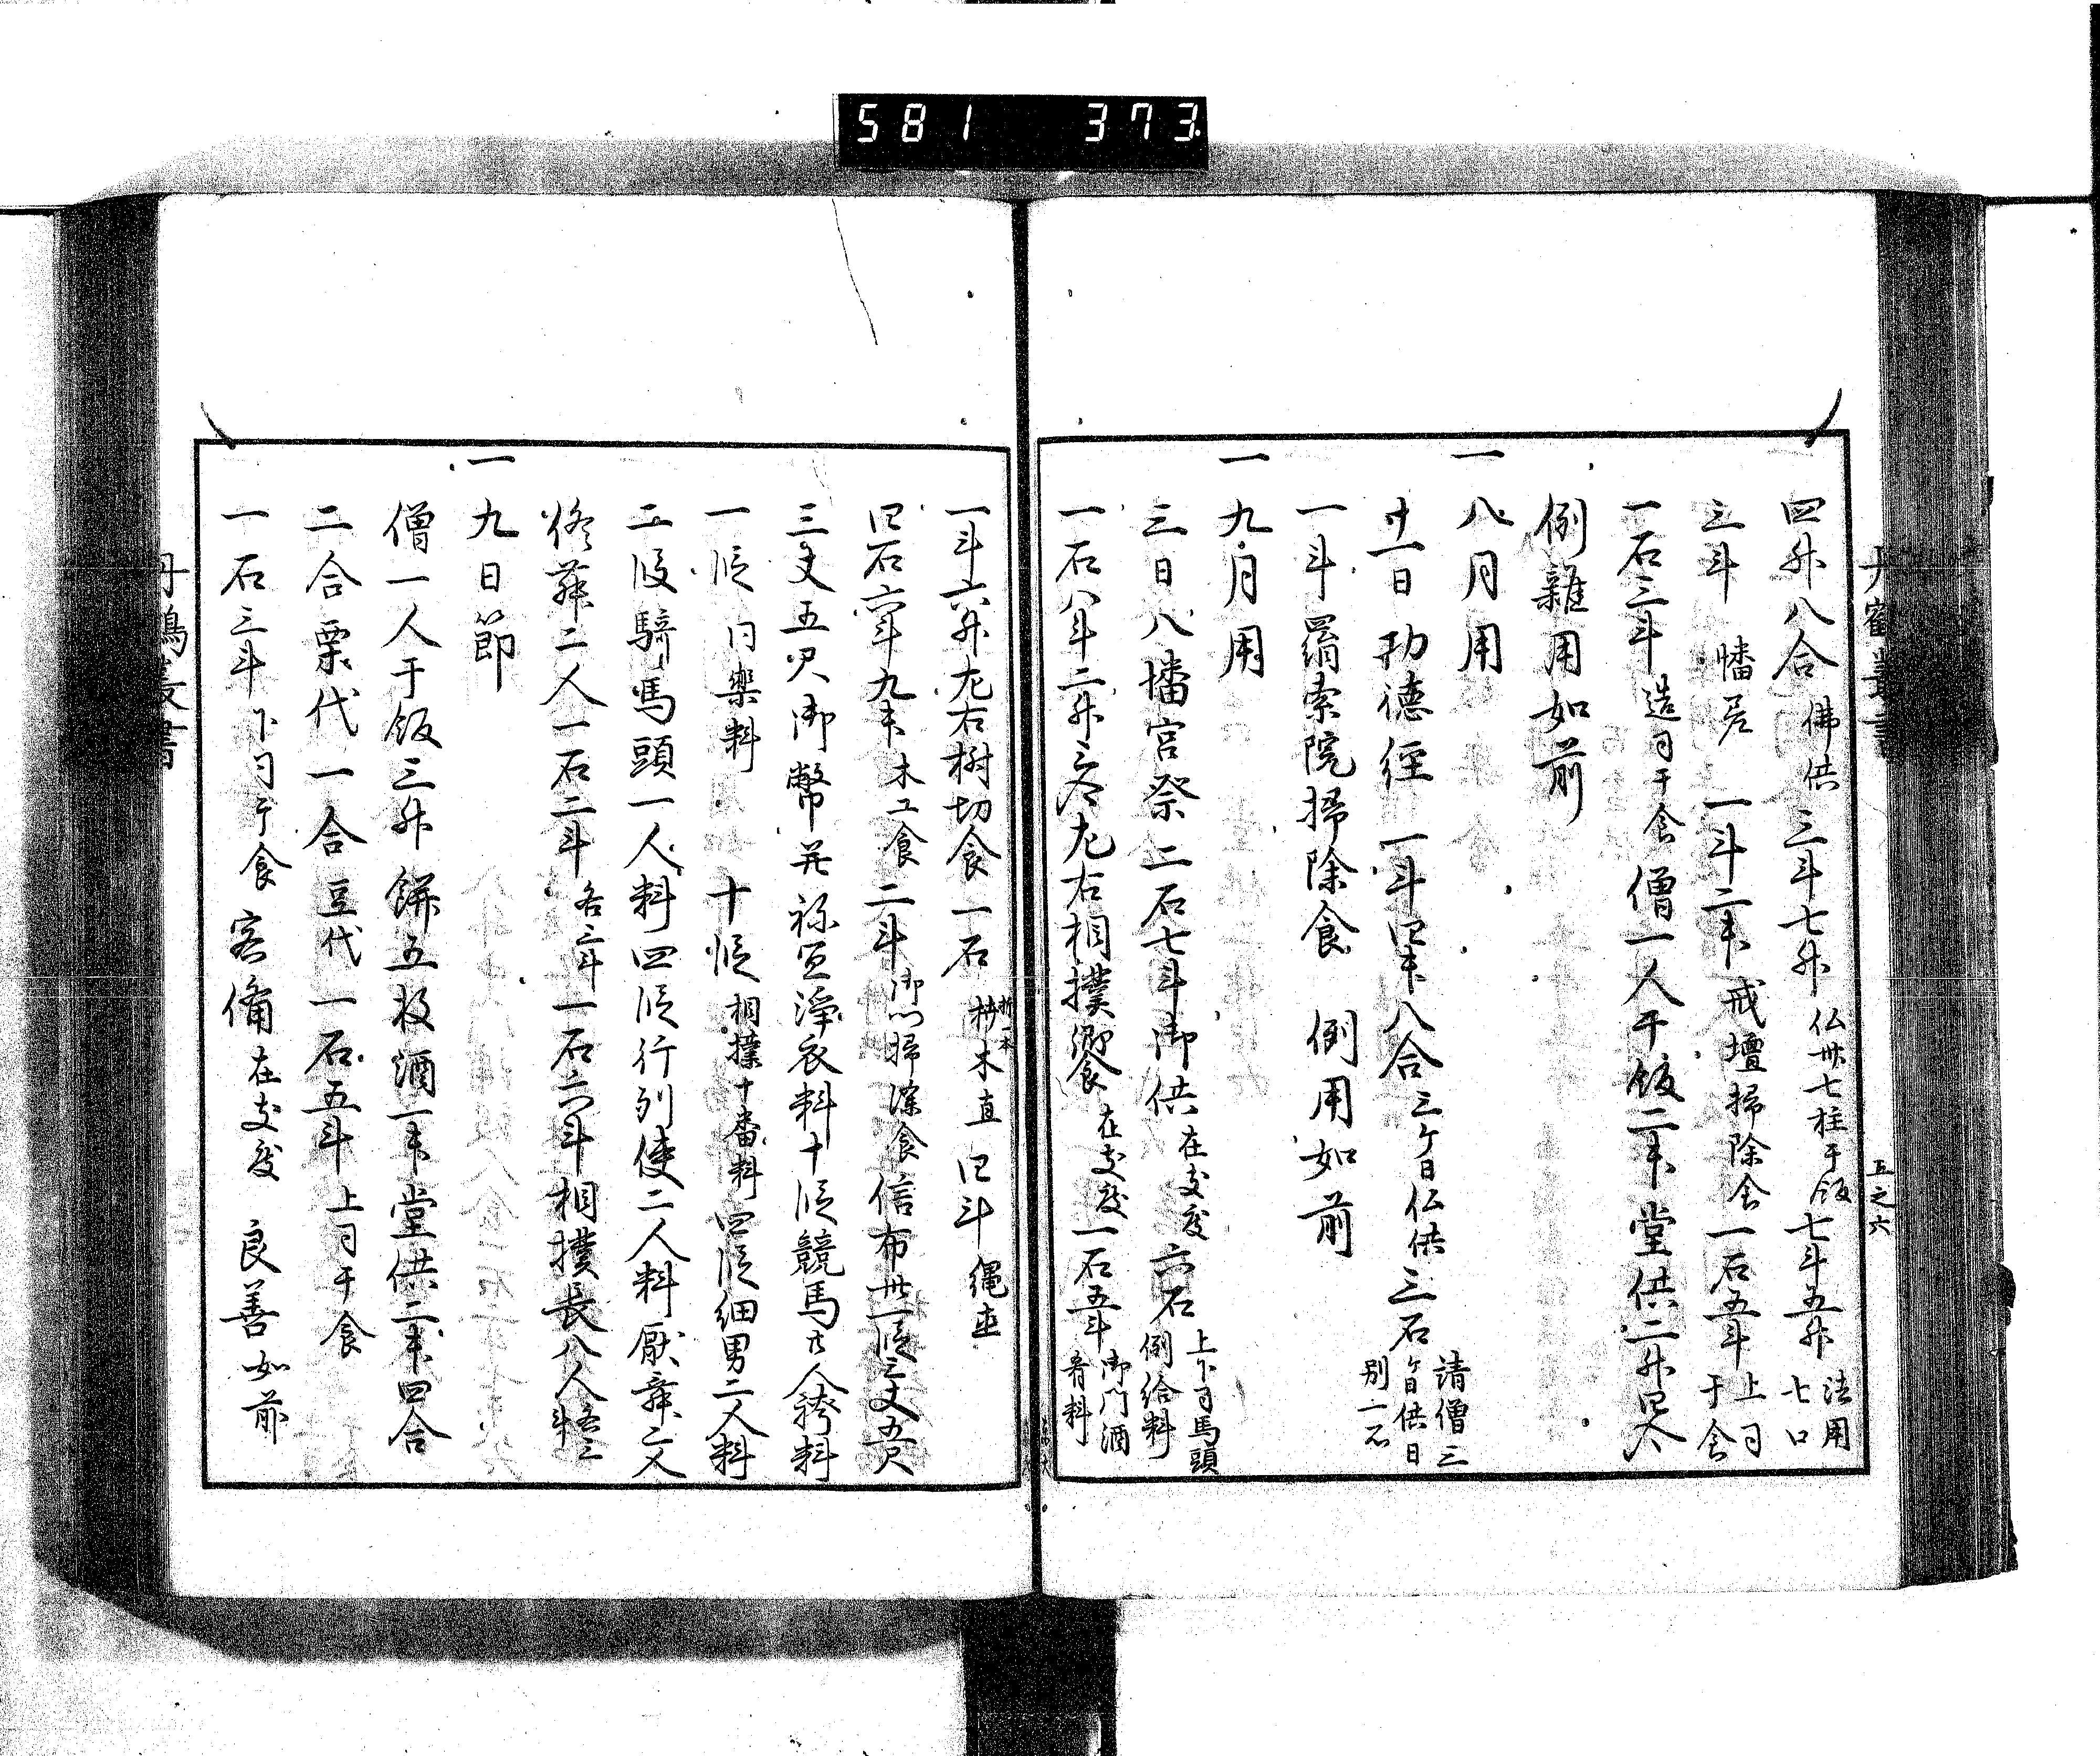 581 373
丹鶴叢書
五之六
四升八合 佛供 三斗七升 仏卅七柱干飯 七斗五升 法用七口
三斗 幡居 一斗二升 戒壇掃除食 一石五斗 上司干食
一石三斗 造司干食 僧一人干飯二升 堂供二升四合
例雜用如前
一 八月用
廿一日功德経 一斗四升八合 三ケ日仏供 三石 請僧三ケ日供日別一石
一斗羂索院掃除食 例用如前
一 九月用
三日八幡宮祭二石七斗御供 在支度 六石 上下司馬頭例給料
一石八斗二升 左右相撲饗 在支度 一石五斗 御門酒肴料
一斗六升左右樹切食一石 木直 四斗 縄直
四石六斗九升 木工食 二斗 御門掃除食 信布卅一段三丈五尺
三丈五尺御幣并祢宜淨衣料十段競馬廿人袴料
一段 同樂料 十段 相撲十番料 四段細男二人料
二段騎馬頭一人料四段行列使二人料厭舞二人
修舞二人一石二斗 各三斗 一石六斗相撲長八人 各二斗
一 九日節
僧一人干飯三升餅五枚酒一升堂供二升四合
二合栗代一合 豆代 一石五斗 上司干食
一石三斗 下司干食 客備 在支度 良善如前
丹鶴叢書